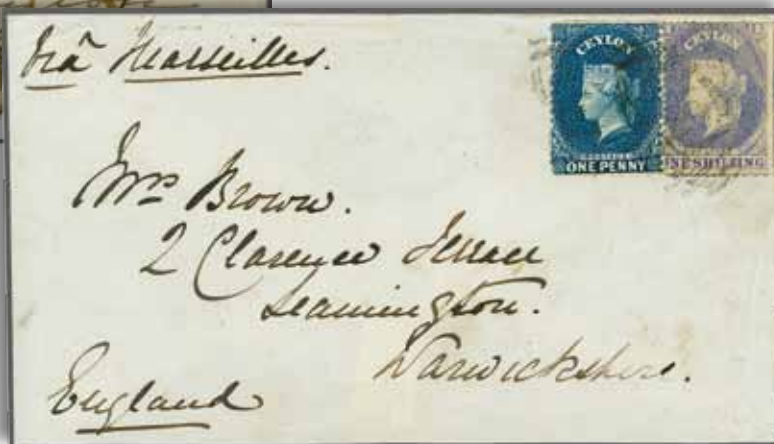 viâ Marseilles.
CEYLON
POSTAGE
ONE PENNY
CEYLON
ONE SHILLING
Mrs Brown.
2 Clarence Terrace
Leamington.
Warwickshire.
England